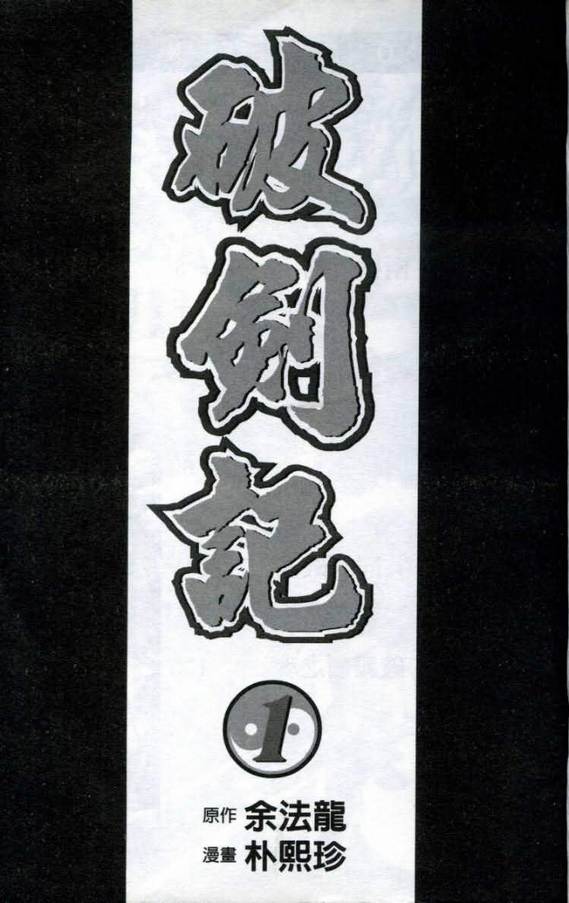 破劍記
1
原作 余法龍
漫畫 朴熙珍